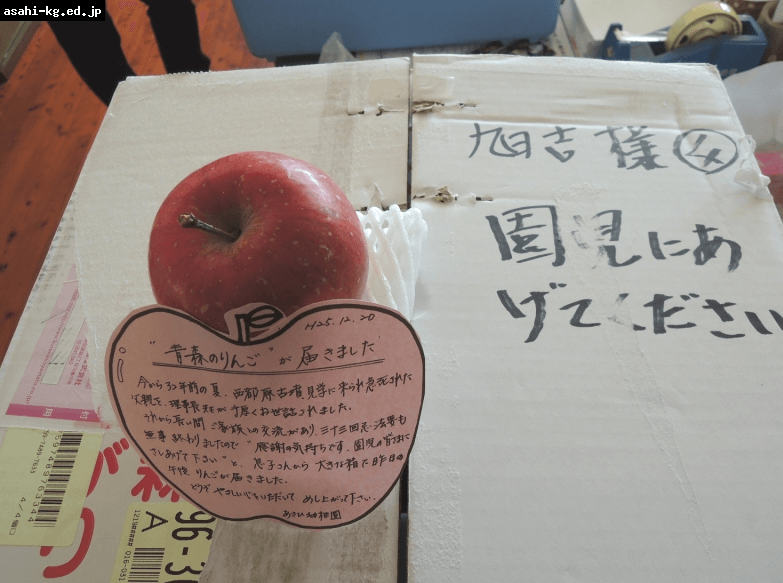 asahi-kg.ed.jp
旭吉様 ④
園児にあ
げてください
H25.12.20
"青森のりんご"が届きました
今から33年前の夏、西都原古墳見学に来られ急死された
父親を、理事長先生が手厚くお世話されました。
それから長い間ご家族との交流があり、三十三回忌の法要も
無事終わりましたので"感謝の気持ちです。園児の皆様に
さしあげて下さい"と、息子さんから大きな箱で昨日の
午後りんごが届きました。
どうぞやさしい心をいただいてめし上がって下さい。
あさひ幼稚園
4/4個口
96-3
A